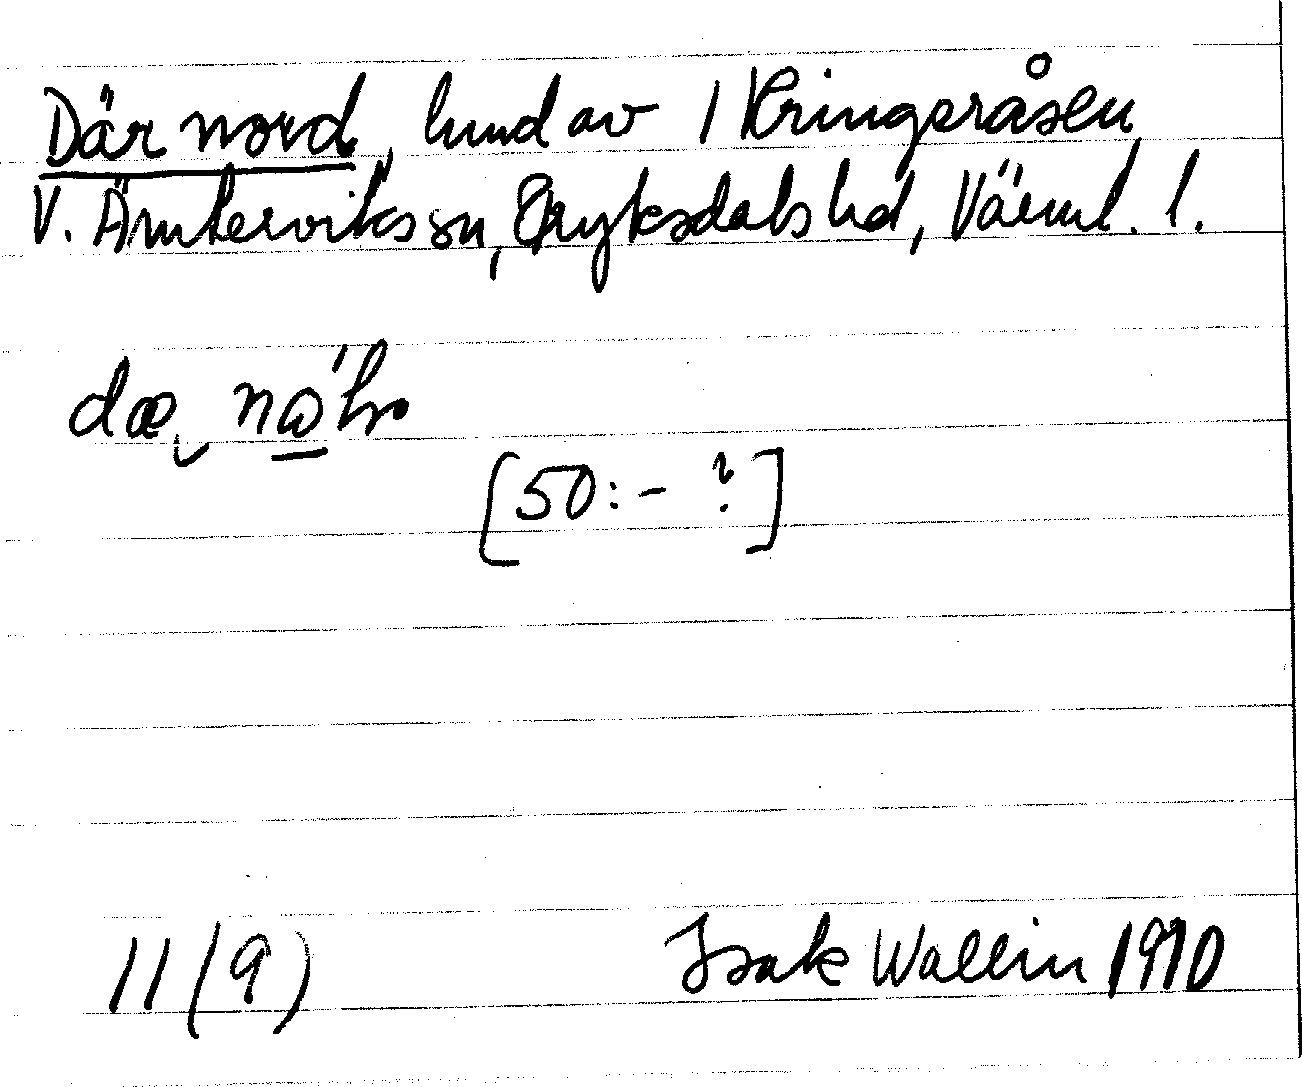 Där nord, lund av 1 Kringeråsen
V. Ämterviks sn, Fryksdals hd, Värml. l.
dæ
[50:- ?]
11 (9) Isak Wallin 1910